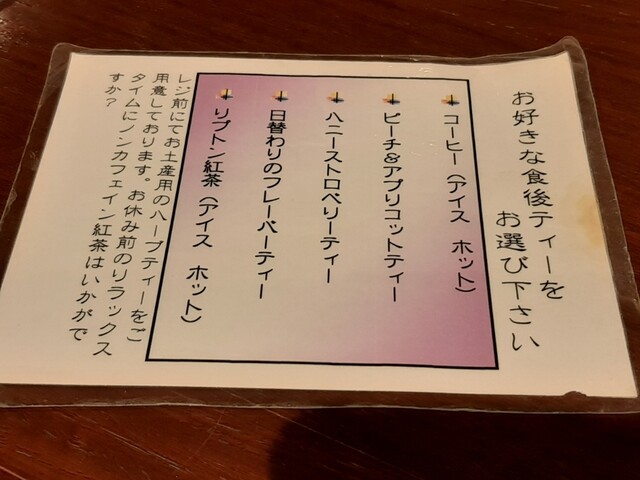 お好きな食後ティーを
お選び下さい
コーヒー（アイス　ホット）
ピーチ＆アプリコットティー
ハニーストロベリーティー
日替わりのフレーバーティー
リプトン紅茶（アイス　ホット）
レジ前にてお土産用のハーブティーをご
用意しております。お休み前のリラックス
タイムにノンカフェイン紅茶はいかがで
すか？